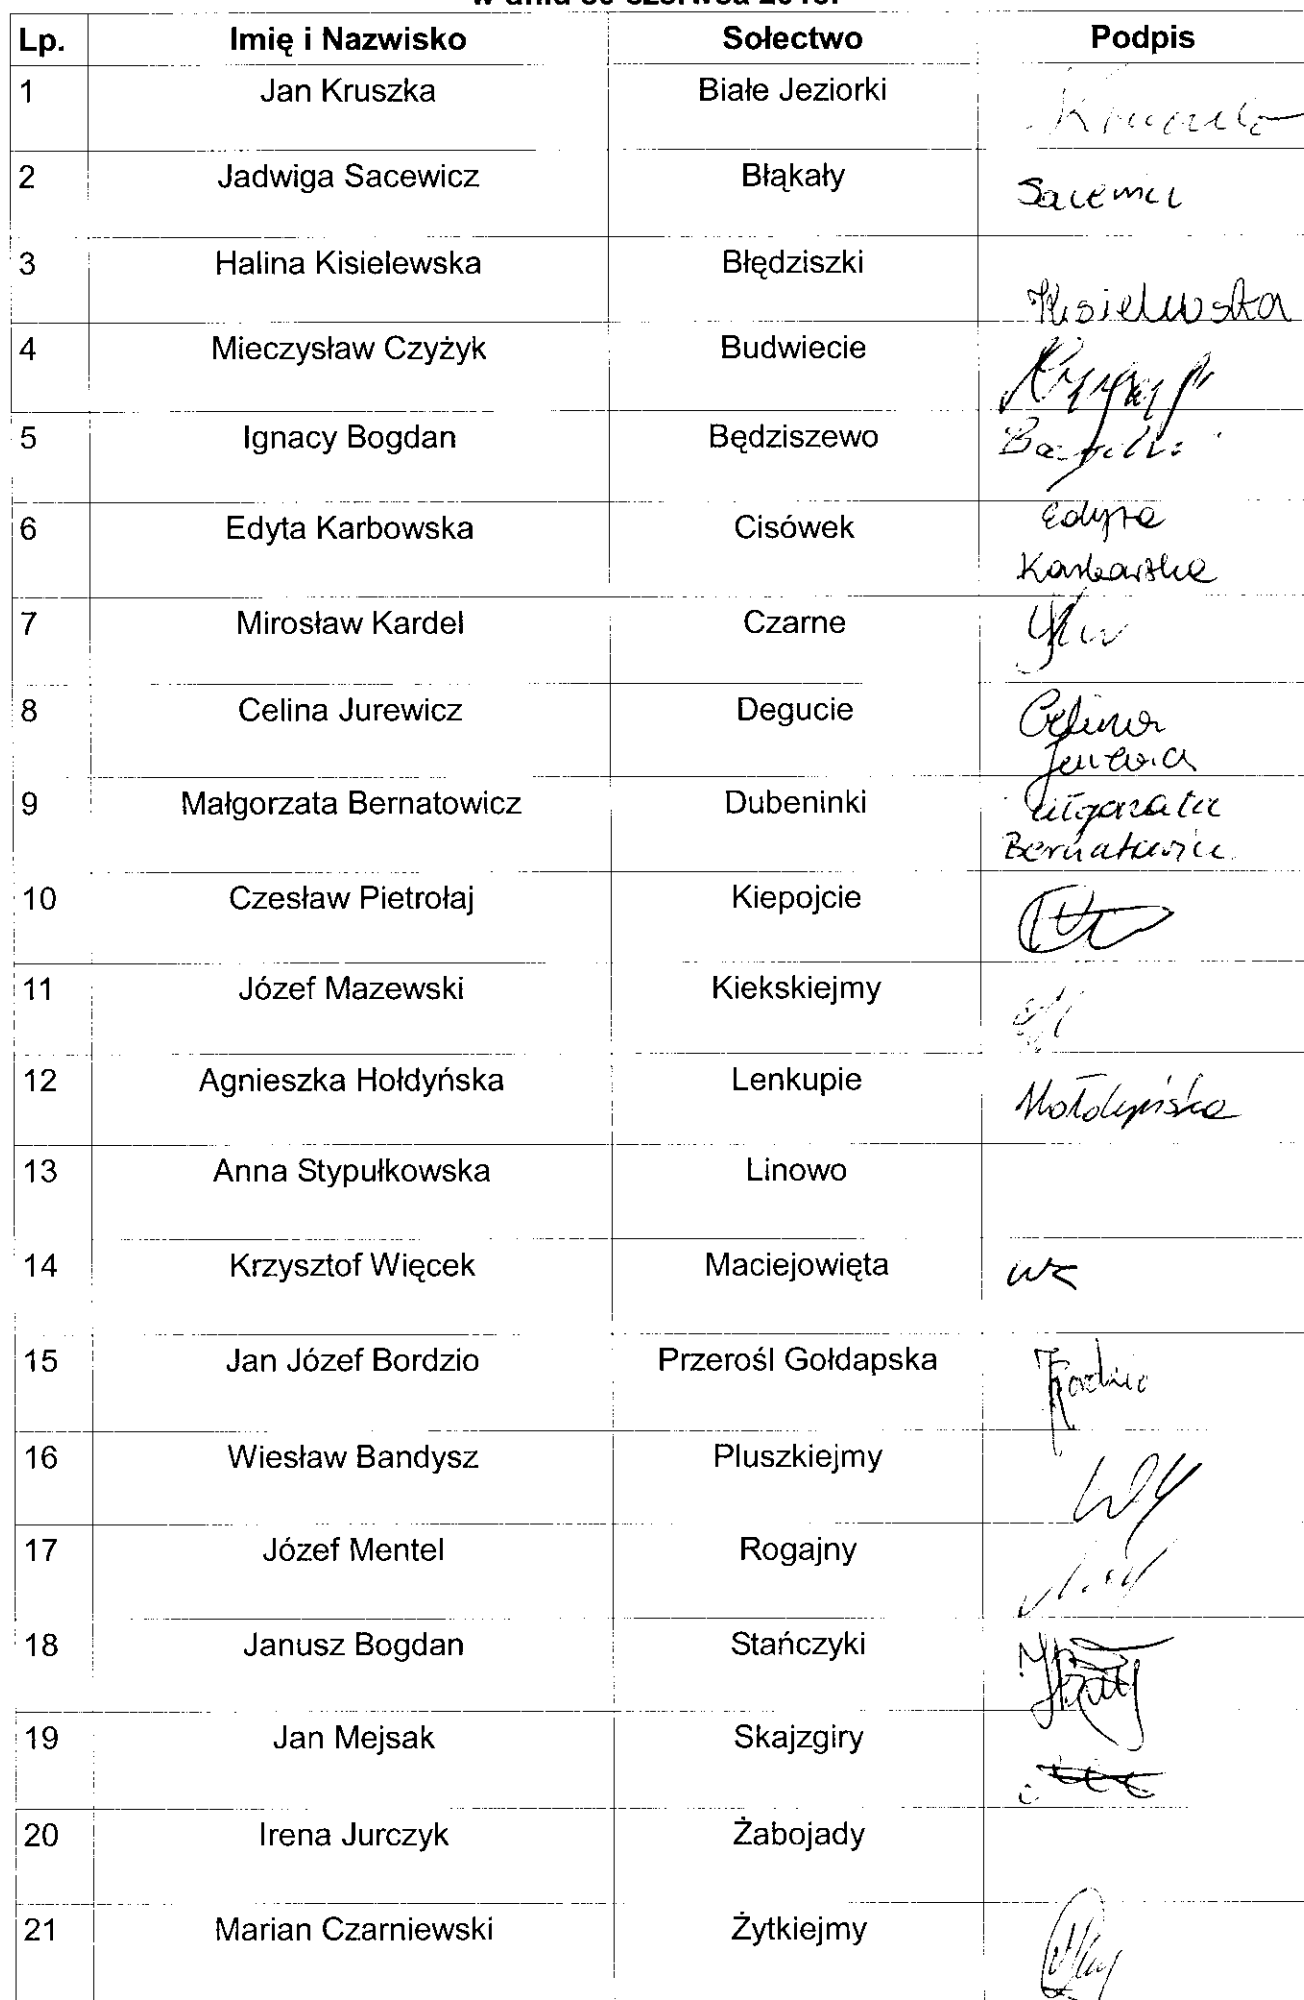 Lp. Imię i Nazwisko Sołectwo Podpis
1 Jan Kruszka Białe Jeziorki
2 Jadwiga Sacewicz Błąkały
3 Halina Kisielewska Błędziszki Kisielewska
4 Mieczysław Czyżyk Budwiecie
5 Ignacy Bogdan Będziszewo
6 Edyta Karbowska Cisówek Edyta
Karbowska
7 Mirosław Kardel Czarne
8 Celina Jurewicz Degucie Celina
Jurewicz
9 Małgorzata Bernatowicz Dubeninki
Bernatowicz
10 Czesław Pietrołaj Kiepojcie
11 Józef Mazewski Kiekskiejmy
12 Agnieszka Hołdyńska Lenkupie Hołdyńska
13 Anna Stypułkowska Linowo
14 Krzysztof Więcek Maciejowięta
15 Jan Józef Bordzio Przerośl Gołdapska
16 Wiesław Bandysz Pluszkiejmy
17 Józef Mentel Rogajny
18 Janusz Bogdan Stańczyki
19 Jan Mejsak Skajzgiry
20 Irena Jurczyk Żabojady
21 Marian Czarniewski Żytkiejmy